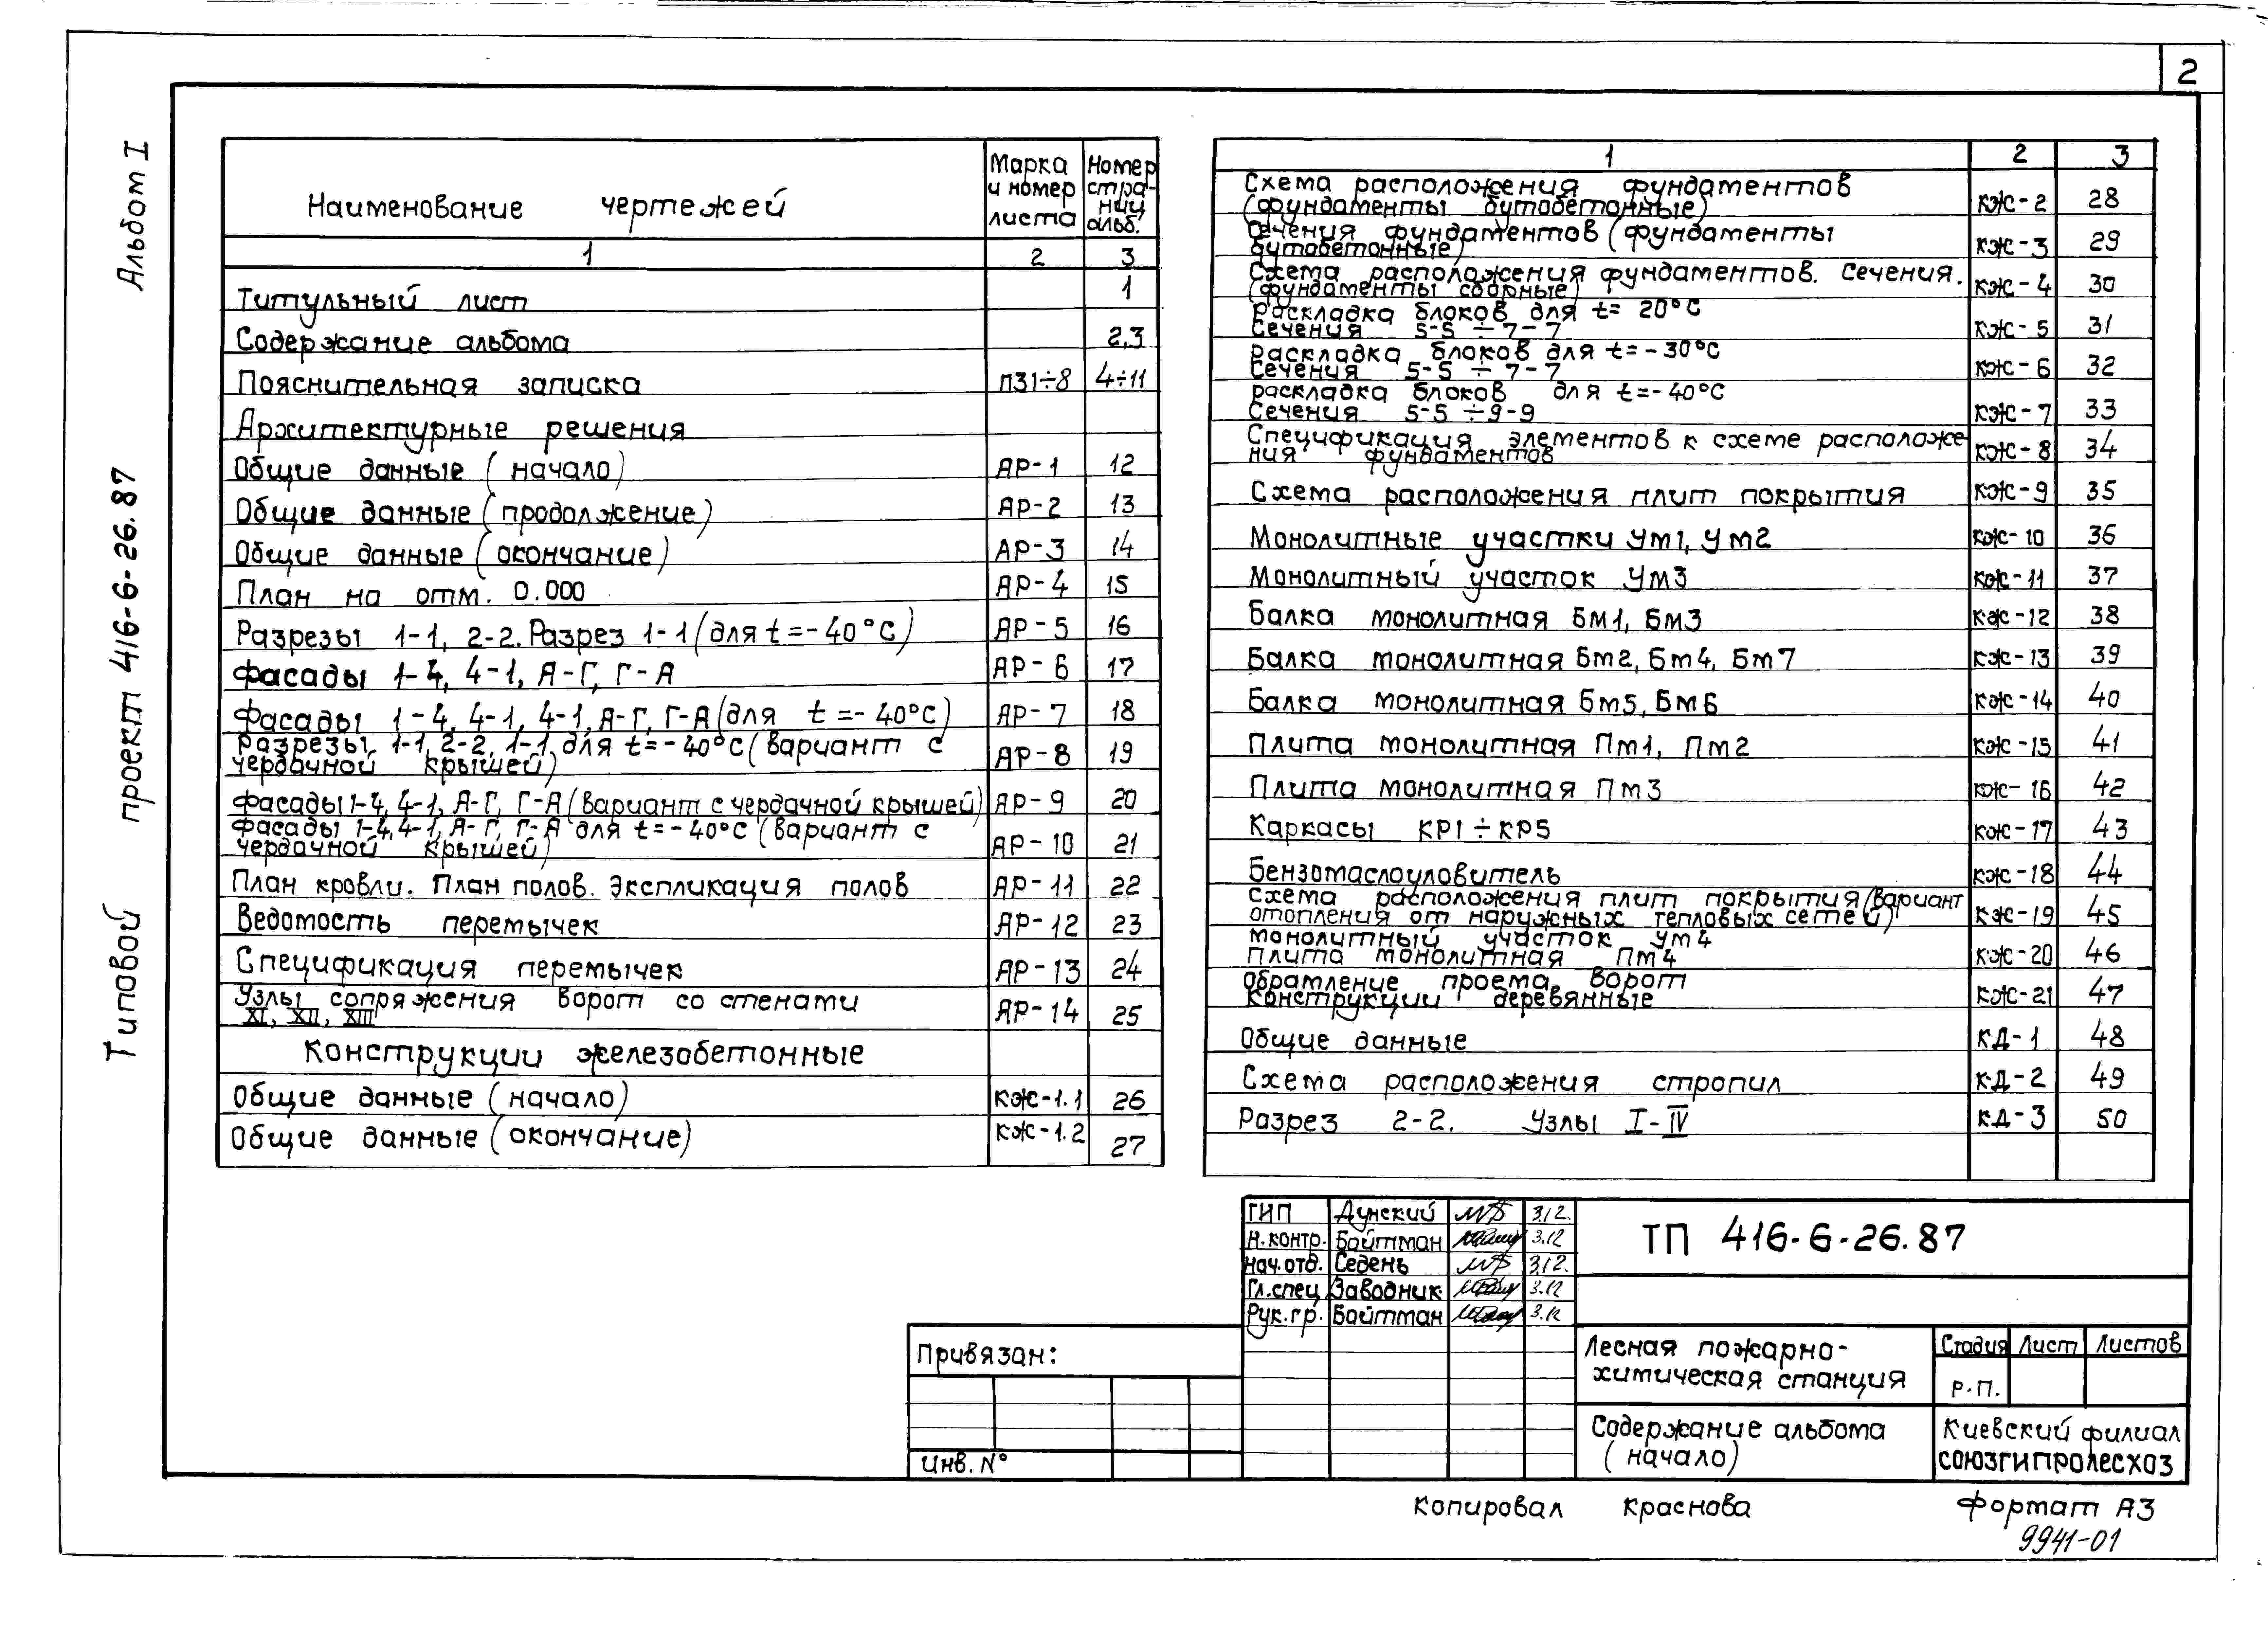 2
Альбом I
Типовой проект 416-6-26.87
Наименование чертежей
Марка и номер листа
Номер страниц альб.
1 2 3
Титульный лист 1
Содержание альбома 2,3
Пояснительная записка ПЗ1÷8 4÷11
Архитектурные решения
Общие данные (начало) АР-1 12
Общие данные (продолжение) АР-2 13
Общие данные (окончание) АР-3 14
План на отм. 0.000 АР-4 15
Разрезы 1-1, 2-2. Разрез 1-1 (для t=-40°С) АР-5 16
Фасады 1-4, 4-1, А-Г, Г-А АР-6 17
Фасады 1-4, 4-1, 4-1, А-Г, Г-А (для t=-40°С) АР-7 18
Разрезы 1-1, 2-2, 1-1, для t=-40°С (вариант с
чердачной крышей) АР-8 19
Фасады 1-4, 4-1, А-Г, Г-А (вариант с чердачной крышей) АР-9 20
Фасады 1-4, 4-1, А-Г, Г-А для t=-40°С (вариант с
чердачной крышей) АР-10 21
План кровли. План полов. Экспликация полов АР-11 22
Ведомость перемычек АР-12 23
Спецификация перемычек АР-13 24
Узлы сопряжения ворот со стенами
XI, XII, XIII АР-14 25
Конструкции железобетонные
Общие данные (начало) КЖ-1.1 26
Общие данные (окончание) КЖ-1.2 27
1 2 3
Схема расположения фундаментов
(фундаменты бутобетонные) КЖ-2 28
Сечения фундаментов (фундаменты
бутобетонные) КЖ-3 29
Схема расположения фундаментов. Сечения.
(фундаменты сборные) КЖ-4 30
Раскладка блоков для t= 20°С
Сечения 5-5 ÷ 7-7 КЖ-5 31
Раскладка блоков для t=-30°С
Сечения 5-5 ÷ 7-7 КЖ-6 32
Раскладка блоков для t=-40°С
Сечения 5-5 ÷ 9-9 КЖ-7 33
Спецификация элементов к схеме расположе-
ния фундаментов КЖ-8 34
Схема расположения плит покрытия КЖ-9 35
Монолитные участки Ум1, Ум2 КЖ-10 36
Монолитный участок Ум3 КЖ-11 37
Балка монолитная Бм1, Бм3 КЖ-12 38
Балка монолитная Бм2, Бм4, Бм7 КЖ-13 39
Балка монолитная Бм5, Бм6 КЖ-14 40
Плита монолитная Пм1, Пм2 КЖ-15 41
Плита монолитная Пм3 КЖ-16 42
Каркасы КР1÷КР5 КЖ-17 43
Бензомаслоуловитель КЖ-18 44
Схема расположения плит покрытия (вариант
отопления от наружных тепловых сетей) КЖ-19 45
Монолитный участок Ум4
Плита монолитная Пм4 КЖ-20 46
Обрамление проема ворот
Конструкции деревянные КЖ-21 47
Общие данные КД-1 48
Схема расположения стропил КД-2 49
Разрез 2-2. Узлы I-IV КД-3 50
ГИП Дунский 3.12.
Н.контр. Бойтман 3.12
Нач.отд. Седень 3.12.
Гл.спец Заводник 3.12
Рук.гр. Бойтман 3.12
ТП 416-6-26.87
Привязан:
Инв. N°
Лесная пожарно-
химическая станция
Стадия Лист Листов
Р.П.
Содержание альбома
(начало)
Киевский филиал
СОЮЗГИПРОЛЕСХОЗ
Копировал Краснова
Формат А3
9941-01